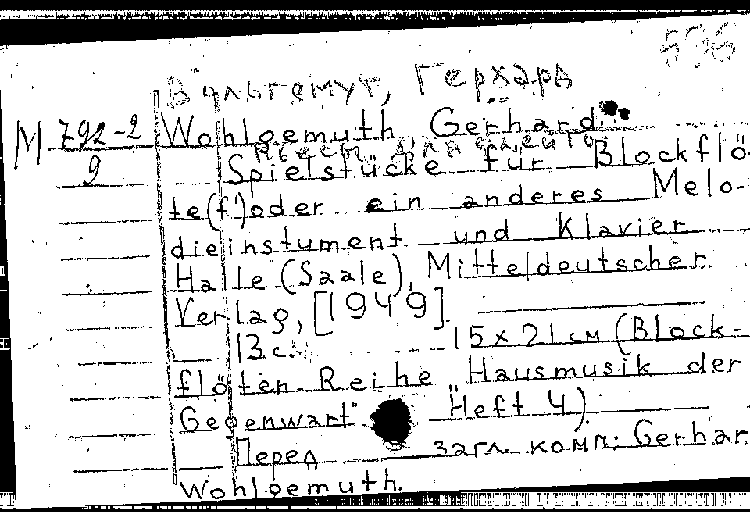 596
Вольгемут, Герхард
М 792-2
9
Wohlgemuth Gerhard
Пьесы для флейты
Spielstücke für Blockflö-
te(f')oder ein anderes Melo-
dieinstument und Klavier
Halle (Saale), Mitteldeutscher
Verlag, [1949].
13 с. 15x21см (Block-
flöten-Reihe "Hausmusik der
Gegenwart". Heft 4)
Перед загл. комп.: Gerhar
Wohlgemuth.